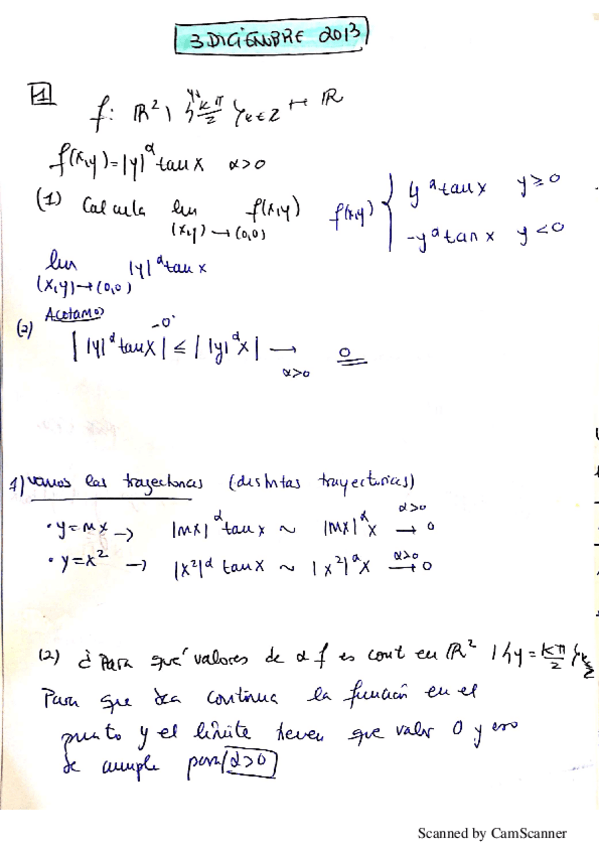 3 DICIEMBRE 2013
1
f: ℝ² \ {kπ/2}k∈Z ↦ ℝ
f(x,y) = |y|^α tan x α>0
(1) Calcula lim (x,y)→(0,0) f(x,y) f(x,y) { y^α tan x y≥0
-y^α tan x y<0
lim (x,y)→(0,0) |y|^α tan x
(2) Acotamos
| |y|^α tan x | ≤ | |y|^α x | → α>0 0
1) vamos las trayectorias (distintas trayectorias)
• y=mx → |mx|^α tan x ~ |mx|^α x →α>0 0
• y=x² → |x²|^α tan x ~ |x²|^α x →α>0 0
(2) ¿Para qué valores de α f es cont en ℝ² \ {y=kπ/2}k∈Z
Para que sea continua la función en el
punto y el límite tienen que valer 0 y eso
se cumple para α>0
Scanned by CamScanner